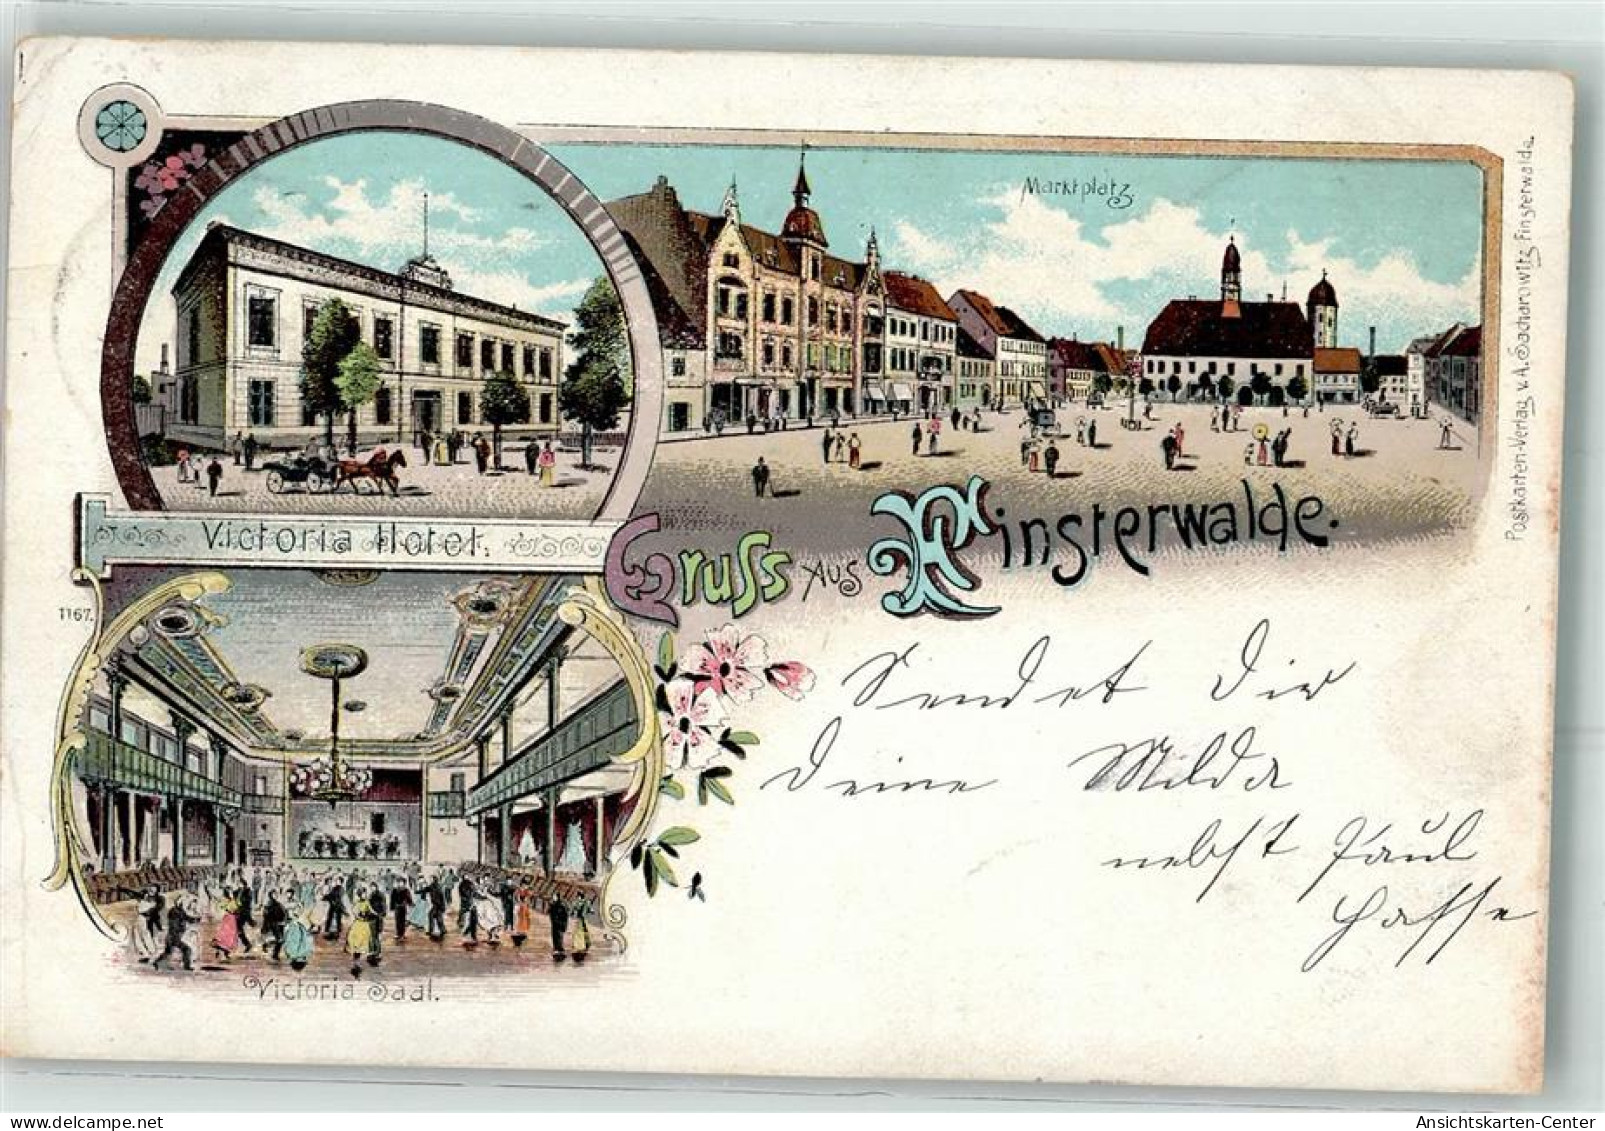 Marktplatz
Victoria Hotel.
Gruss aus Finsterwalde.
1167.
Victoria Saal.
Sendet Dir
Deine Milda
nebst Paul
Hasse
Postkarten-Verlag v. A. Sacharowitz Finsterwalde.
Ansichtskarten-Center